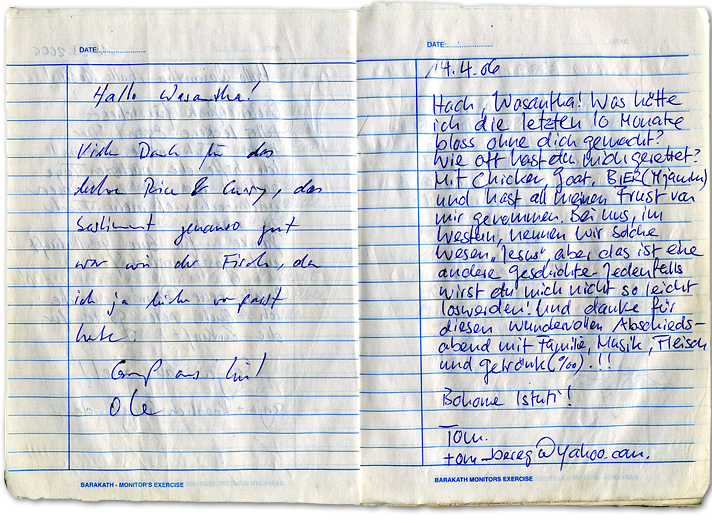 DATE:
Hallo Wasantha!
Vielen Dank für das
leckere Rice & Curry, das
bestimmt genauso gut
war wie der Fisch, den
ich ja leider verpasst
habe.
Gruß aus
Ole
BARAKATH - MONITOR'S EXERCISE
DATE:
14.4.06
Hach, Wasantha! Was hätte
ich die letzten 10 Monate
bloss ohne dich gemacht?
Wie oft hast du mich gerettet?
Mit Chicken, Goat, BIER
und hast all meinen Frust von
mir genommen. Bei uns, im
Westen, nennen wir solche
Wesen „Jesus", aber das ist eine
andere Geschichte. Jedenfalls
wirst du mich nicht so leicht
loswerden! Und danke für
diesen wundervollen Abschieds-
abend mit Familie, Musik, Fleisch
und Getränk (‰)!!!
Bohome Istuti!
Tom.
tom_bereg@yahoo.com.
BARAKATH MONITORS EXERCISE